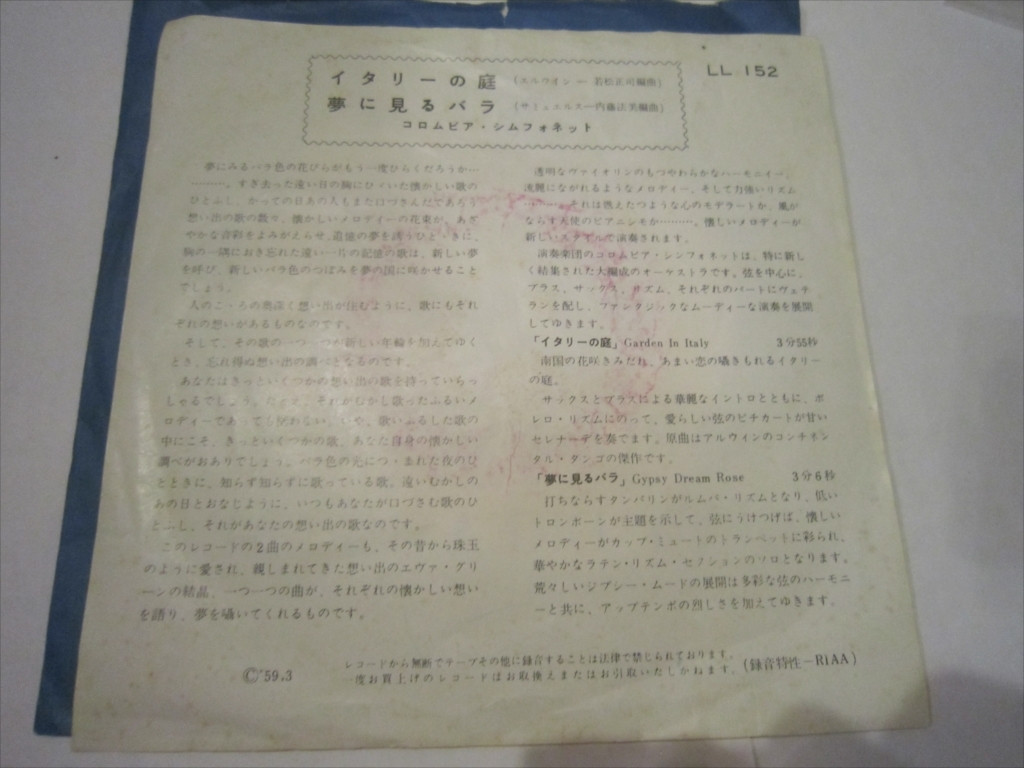 LL 152
イタリーの庭 (エルウイン — 若松正司編曲)
夢に見るバラ (サミュエルス—内藤法美編曲)
コロムビア・シムフォネット
夢にみるバラ色の花びらがもう一度ひらくだろうか…
………。すぎ去った遠い日の胸にひゞいた懐かしい歌の
ひとふし、かっての日あの人もまた口づさんだであろう
想い出の歌の数々、懐かしいメロディーの花束が、あざ
やかな音彩をよみがえらせ、追憶の夢を誘うひとゝきに、
胸の一隅におき忘れた遠い一片の記憶の歌は、新しい夢
を呼び、新しいバラ色のつぼみを夢の国に咲かせること
でしょう。
人のこゝろの奥深く想い出が住むように、歌にもそれ
ぞれの想いがあるものなのです。
そして、その歌の一つ一つが新しい年輪を加えてゆく
とき、忘れ得ぬ想い出の調べとなるのです。
あなたはきっといくつかの想い出の歌を持っていらっ
しゃるでしょう。たとえ、それがむかし歌ったふるいメ
ロディーであっても構わない、いや、歌いふるした歌の
中にこそ、きっといくつかの歌、あなた自身の懐かしい
調べがおありでしょう。バラ色の光につゝまれた夜のひ
とときに、知らず知らずに歌っている歌。遠いむかしの
あの日とおなじように、いつもあなたが口づさむ歌のひ
とふし、それがあなたの想い出の歌なのです。
このレコードの2曲のメロディーも、その昔から珠玉
のように愛され、親しまれてきた想い出のエヴァ・グリ
ーンの結晶、一つ一つの曲が、それぞれの懐かしい想い
を語り、夢を囁いてくれるものです。
透明なヴァイオリンのもつやわらかなハーモニイー、
流麗にながれるようなメロディー、そして力強いリズム
…………。それは燃えたつような心のモデラートか、風が
ならす天使のピアニシモか………。懐しいメロディーが
新しいスタイルで演奏されます。
演奏楽団のコロムビア・シンフォネットは、特に新し
く結集された大編成のオーケストラです。弦を中心に、
ブラス、サックス、リズム、それぞれのパートにヴェテ
ランを配し、ファンタジックなムーディーな演奏を展開
してゆきます。
「イタリーの庭」Garden In Italy 3分55秒
南国の花咲きみだれ、あまい恋の囁きもれるイタリー
の庭。
サックスとブラスによる華麗なイントロとともに、ボ
レロ・リズムにのって、愛らしい弦のピチカートが甘い
セレナーデを奏でます。原曲はアルウィンのコンチネン
タル・タンゴの傑作です。
「夢に見るバラ」Gypsy Dream Rose 3分6秒
打ちならすタンバリンがルムバ・リズムとなり、低い
トロンボーンが主題を示して、弦にうけつげば、懐しい
メロディーがカップ・ミュートのトランペットに彩られ、
華やかなラテン・リズム・セクションのソロとなります。
荒々しいジプシー・ムードの展開は多彩な弦のハーモニ
ーと共に、アップテンポの烈しさを加えてゆきます。
Ⓒ'59.3
レコードから無断でテープその他に録音することは法律で禁じられております。
一度お買上げのレコードはお取換えまたはお引取いたしかねます。
(録音特性−RIAA)